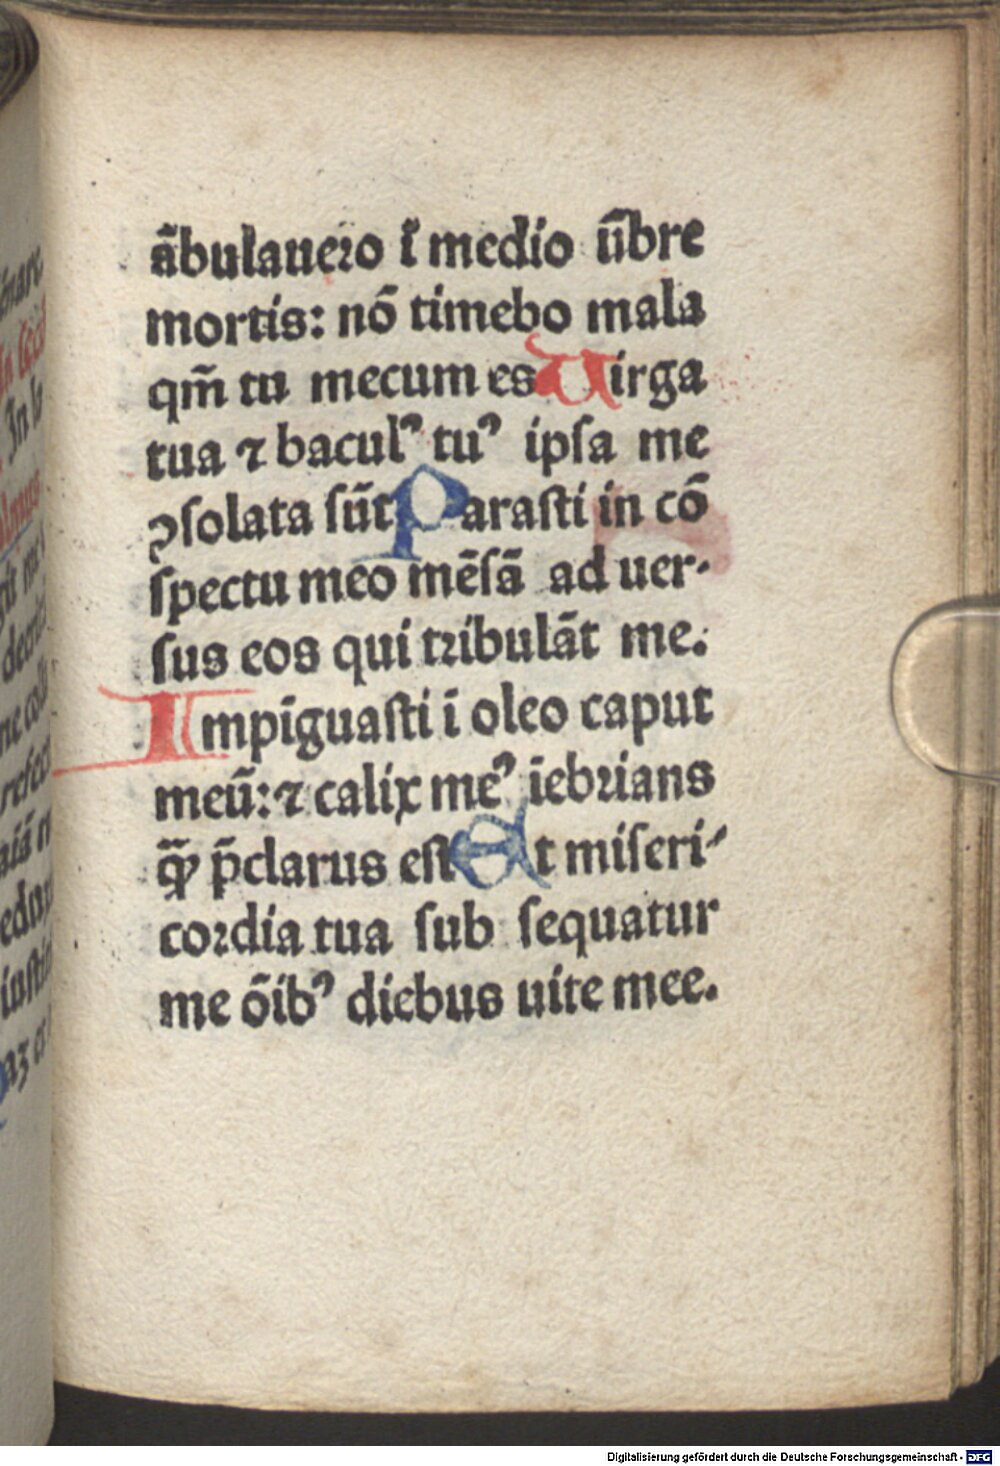 ãbulauero ĩ medio ũbre
mortis: nõ timebo mala
qm̃ tu mecum es Uirga
tua ⁊ baculꝰ tuꝰ ipſa me
ꝯſolata ſũt Paraſti in cõ
ſpectu meo mẽſã ad uer-
sus eos qui tribulãt me.
Impĩguaſti ĩ oleo caput
meũ: ⁊ calix meꝰ ĩebrians
q̃ꝫ p̃clarus eſt Et miſeri-
cordia tua ſub ſequatur
me õibꝰ diebus uite mee.
Digitalisierung gefördert durch die Deutsche Forschungsgemeinschaft - DFG